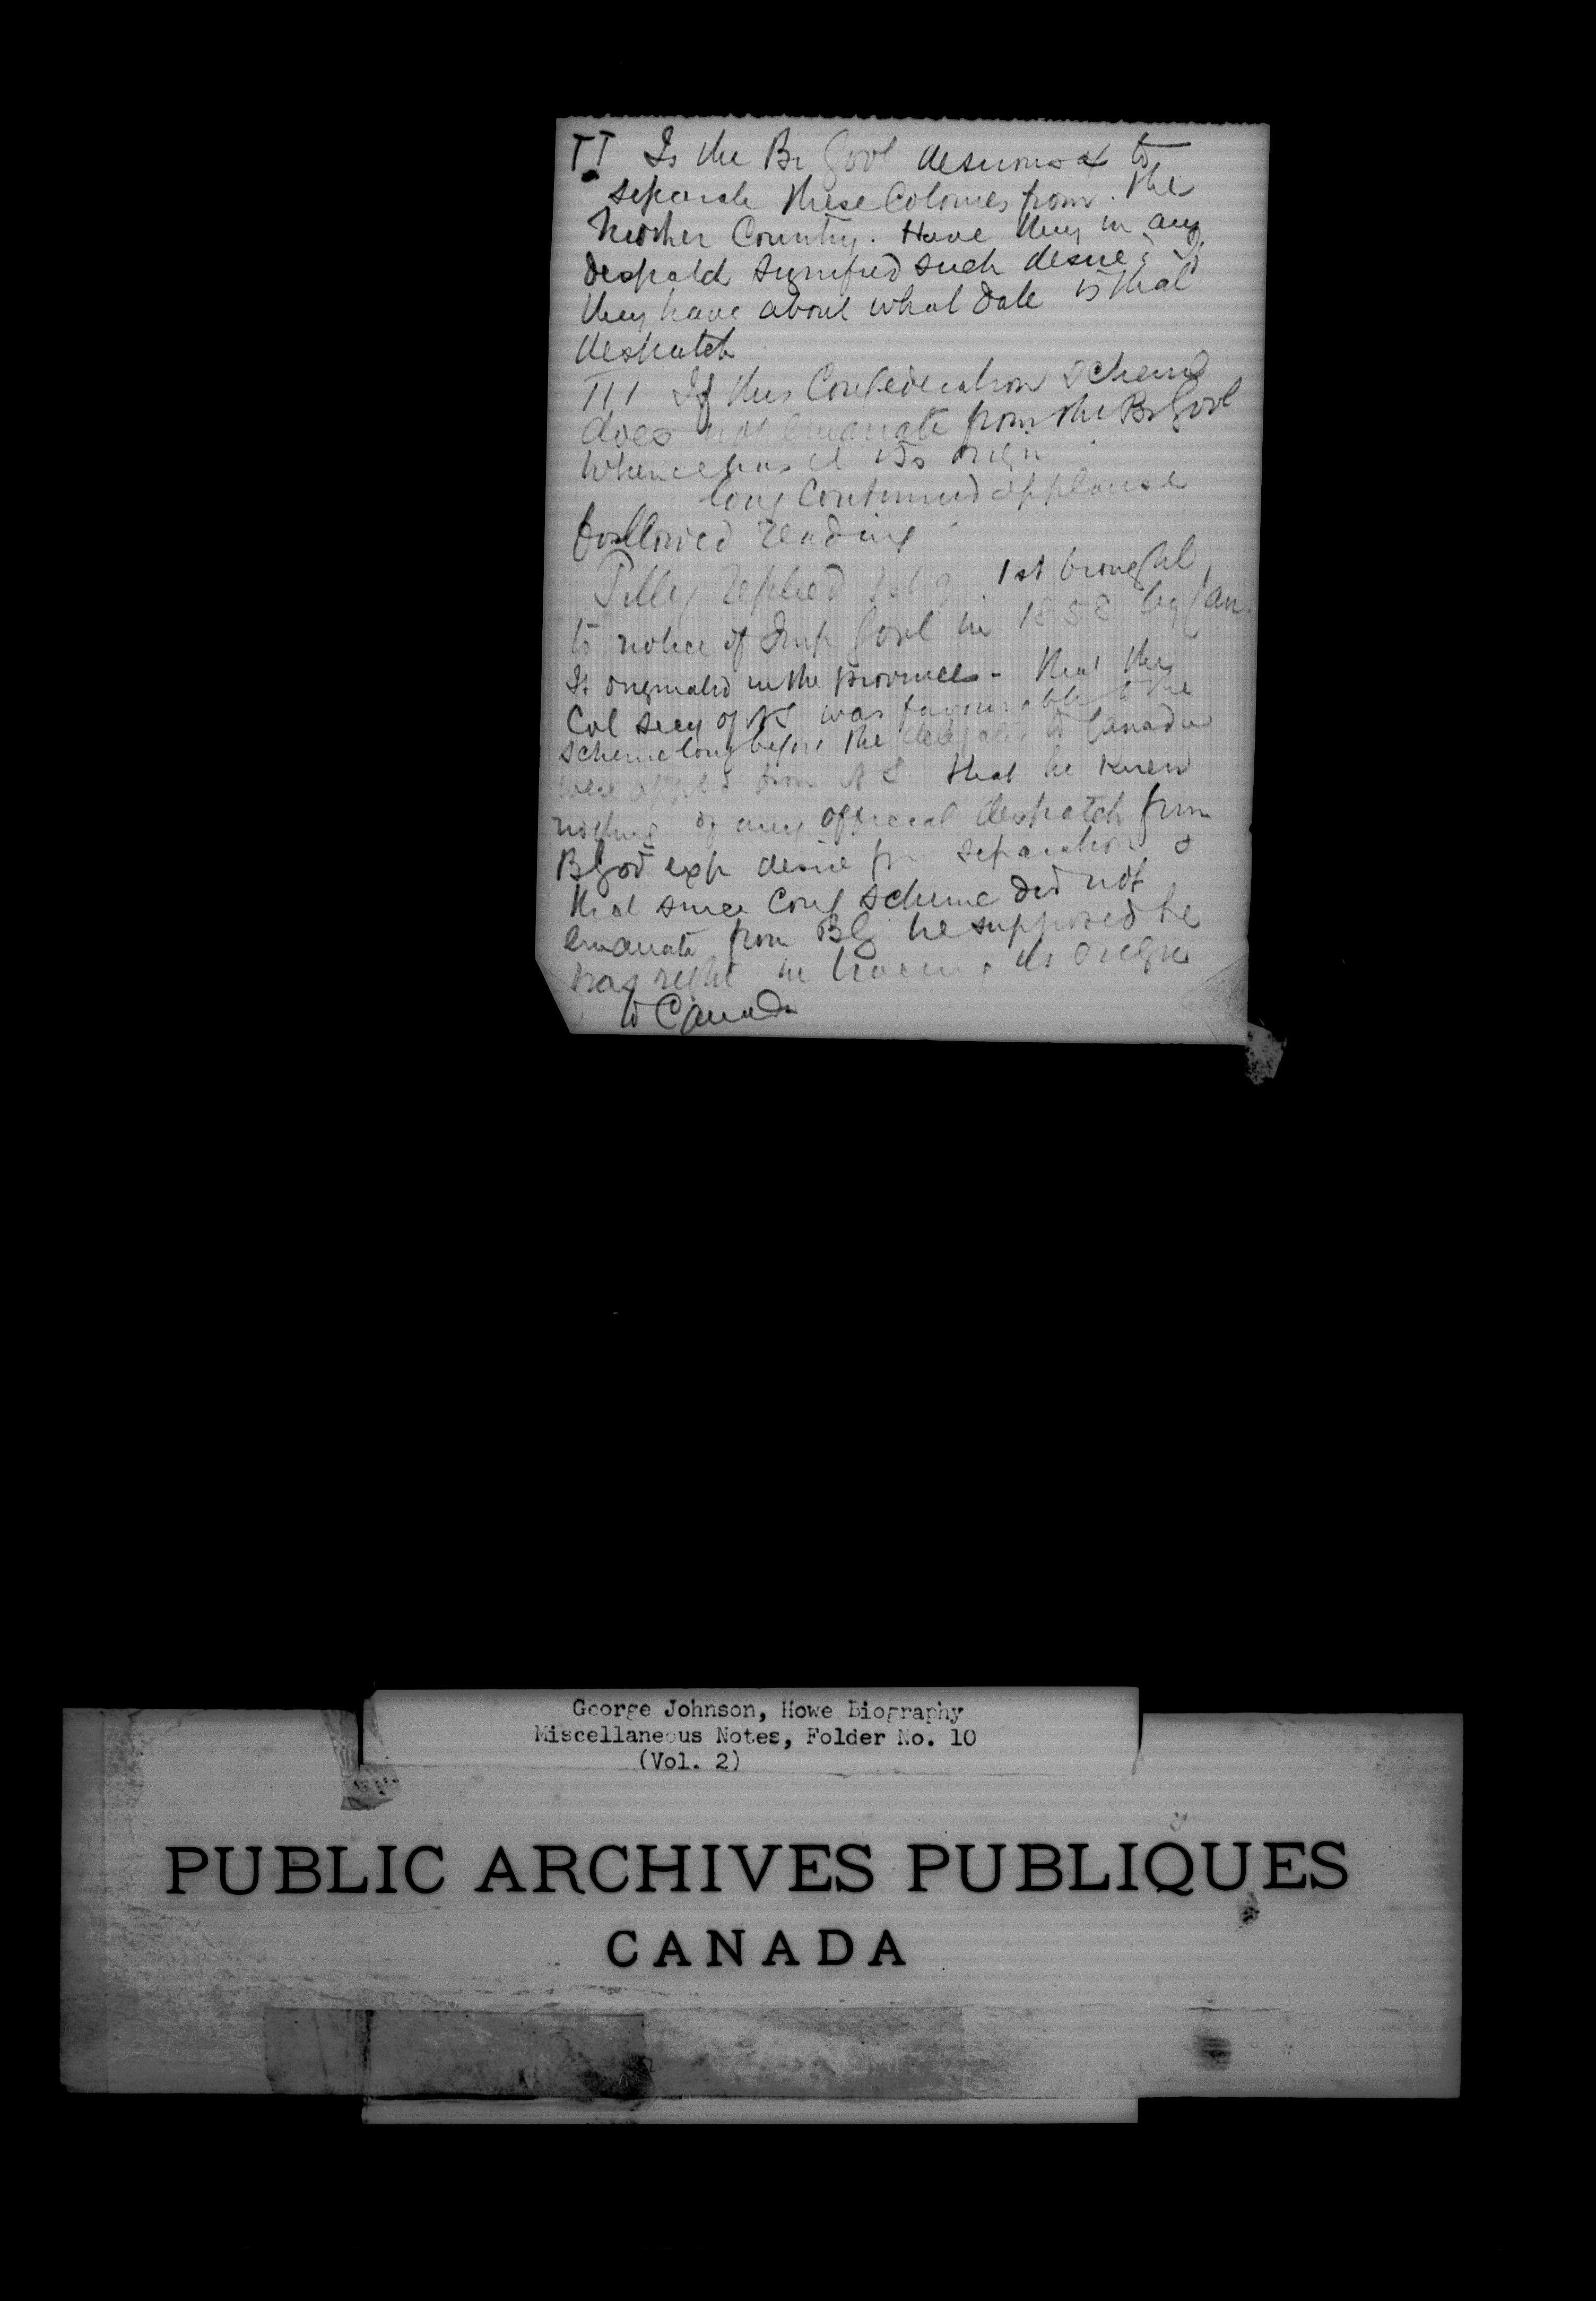 II Is the Br Govt desirous of to
separate these Colonies from the
Mother Country. Have they in any
despatch signified such desire? If
they have about what date is that
despatch
III If this Confederation scheme
does not emanate from the Br Govt
whence has it its origin
long continued applause
followed reading
Tilley replied 1st q. 1st brought
to notice of Imp Govt in 1858 by Can.
It originated in the provinces - that the
Col secy of NS was favourable to the
scheme long before the delegates to Canada
were appd from NS. that he knew
nothing of any official despatch from
B Govt exp desire for separation &
that since Conf scheme did not
emanate from BG he supposed he
was right in tracing its origin
to Canada
George Johnson, Howe Biography
Miscellaneous Notes, Folder No. 10
(Vol. 2)
PUBLIC ARCHIVES PUBLIQUES
CANADA